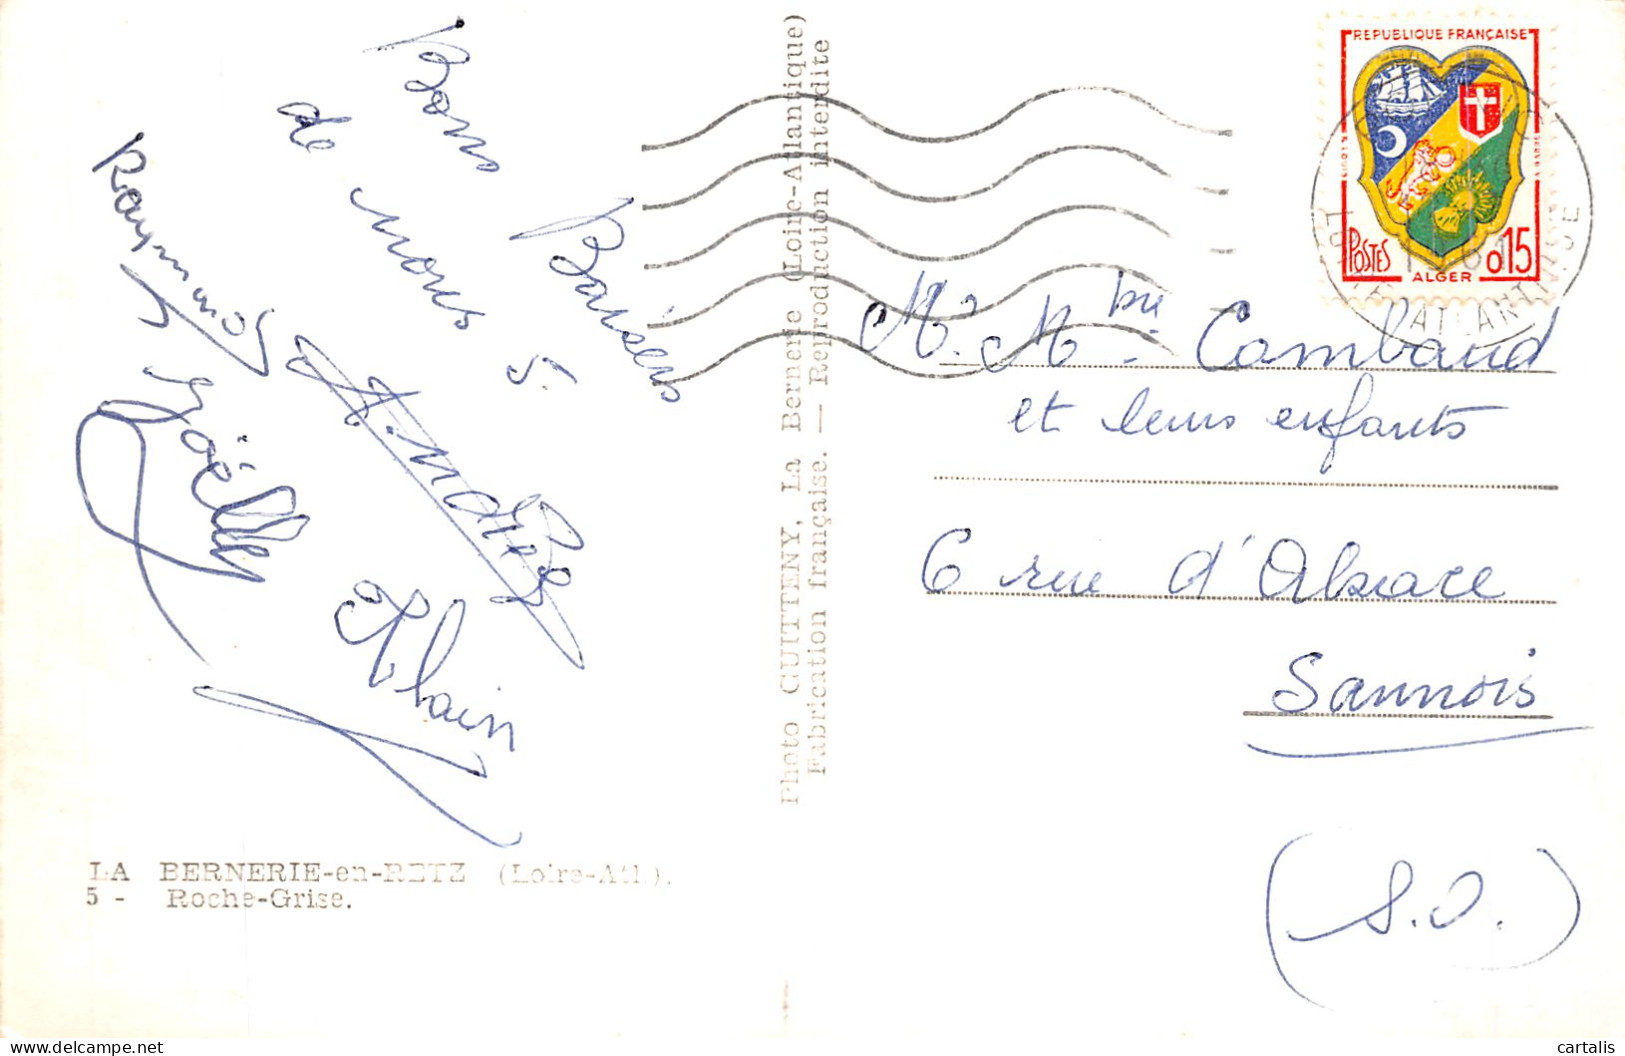 Bons Baisers
de nous 5
Raymond
Andrée
Joëlle
Alain
LA BERNERIE-en-RETZ (Loire-Atl.).
5 - Roche-Grise.
Photo GUITTENY, La Bernerie (Loire-Atlantique)
Fabrication française. — Reproduction interdite
REPUBLIQUE FRANÇAISE
POSTES ALGER 0,15
LOIRE ATLANTIQUE
Mr. Mme. Combaud
et leurs enfants
6 rue d'Alsace
Sannois
(S.O.)
cartalis